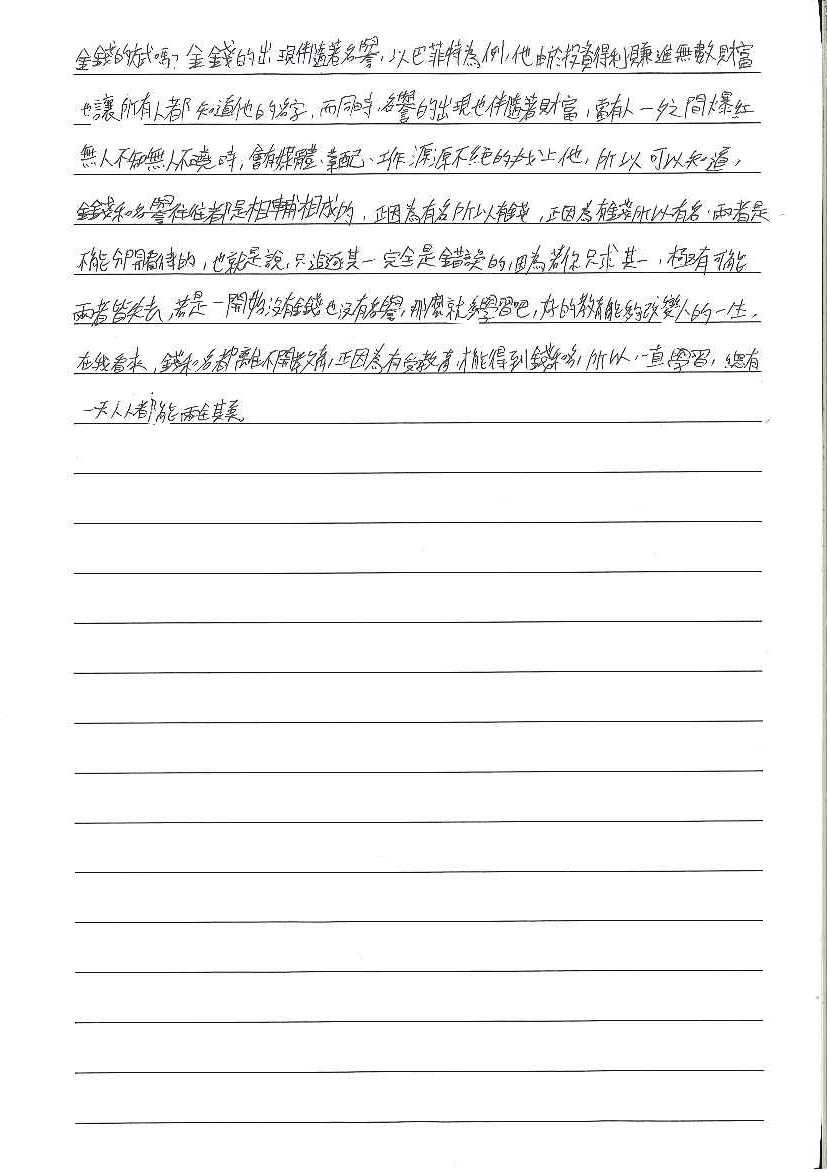 金錢的嗎?金錢的出現伴隨著名譽,以巴菲特為例,他由於投資得利賺進無數財富
也讓所有人都知道他的名字,而同時,名譽的出現也伴隨著財富,當有人一夕之間爆紅
無人不知無人不曉時,會有媒體、業配、工作源源不絕的找上他,所以可以知道,
金錢和名譽往往都是相輔相成的,正因為有名所以有錢,正因為有錢所以有名,兩者是
不能分開看待的,也就是說,只追逐其一完全是錯誤的,因為若你只求其一,極有可能
兩者皆失去,若是一開始沒有金錢也沒有名譽,那麼就多學習吧,好的教育能夠改變人的一生,
在我看來,錢和名都離不開教育,正因為有受教育,才能得到錢和名,所以一直學習,總有
一天人人都能兩全其美。